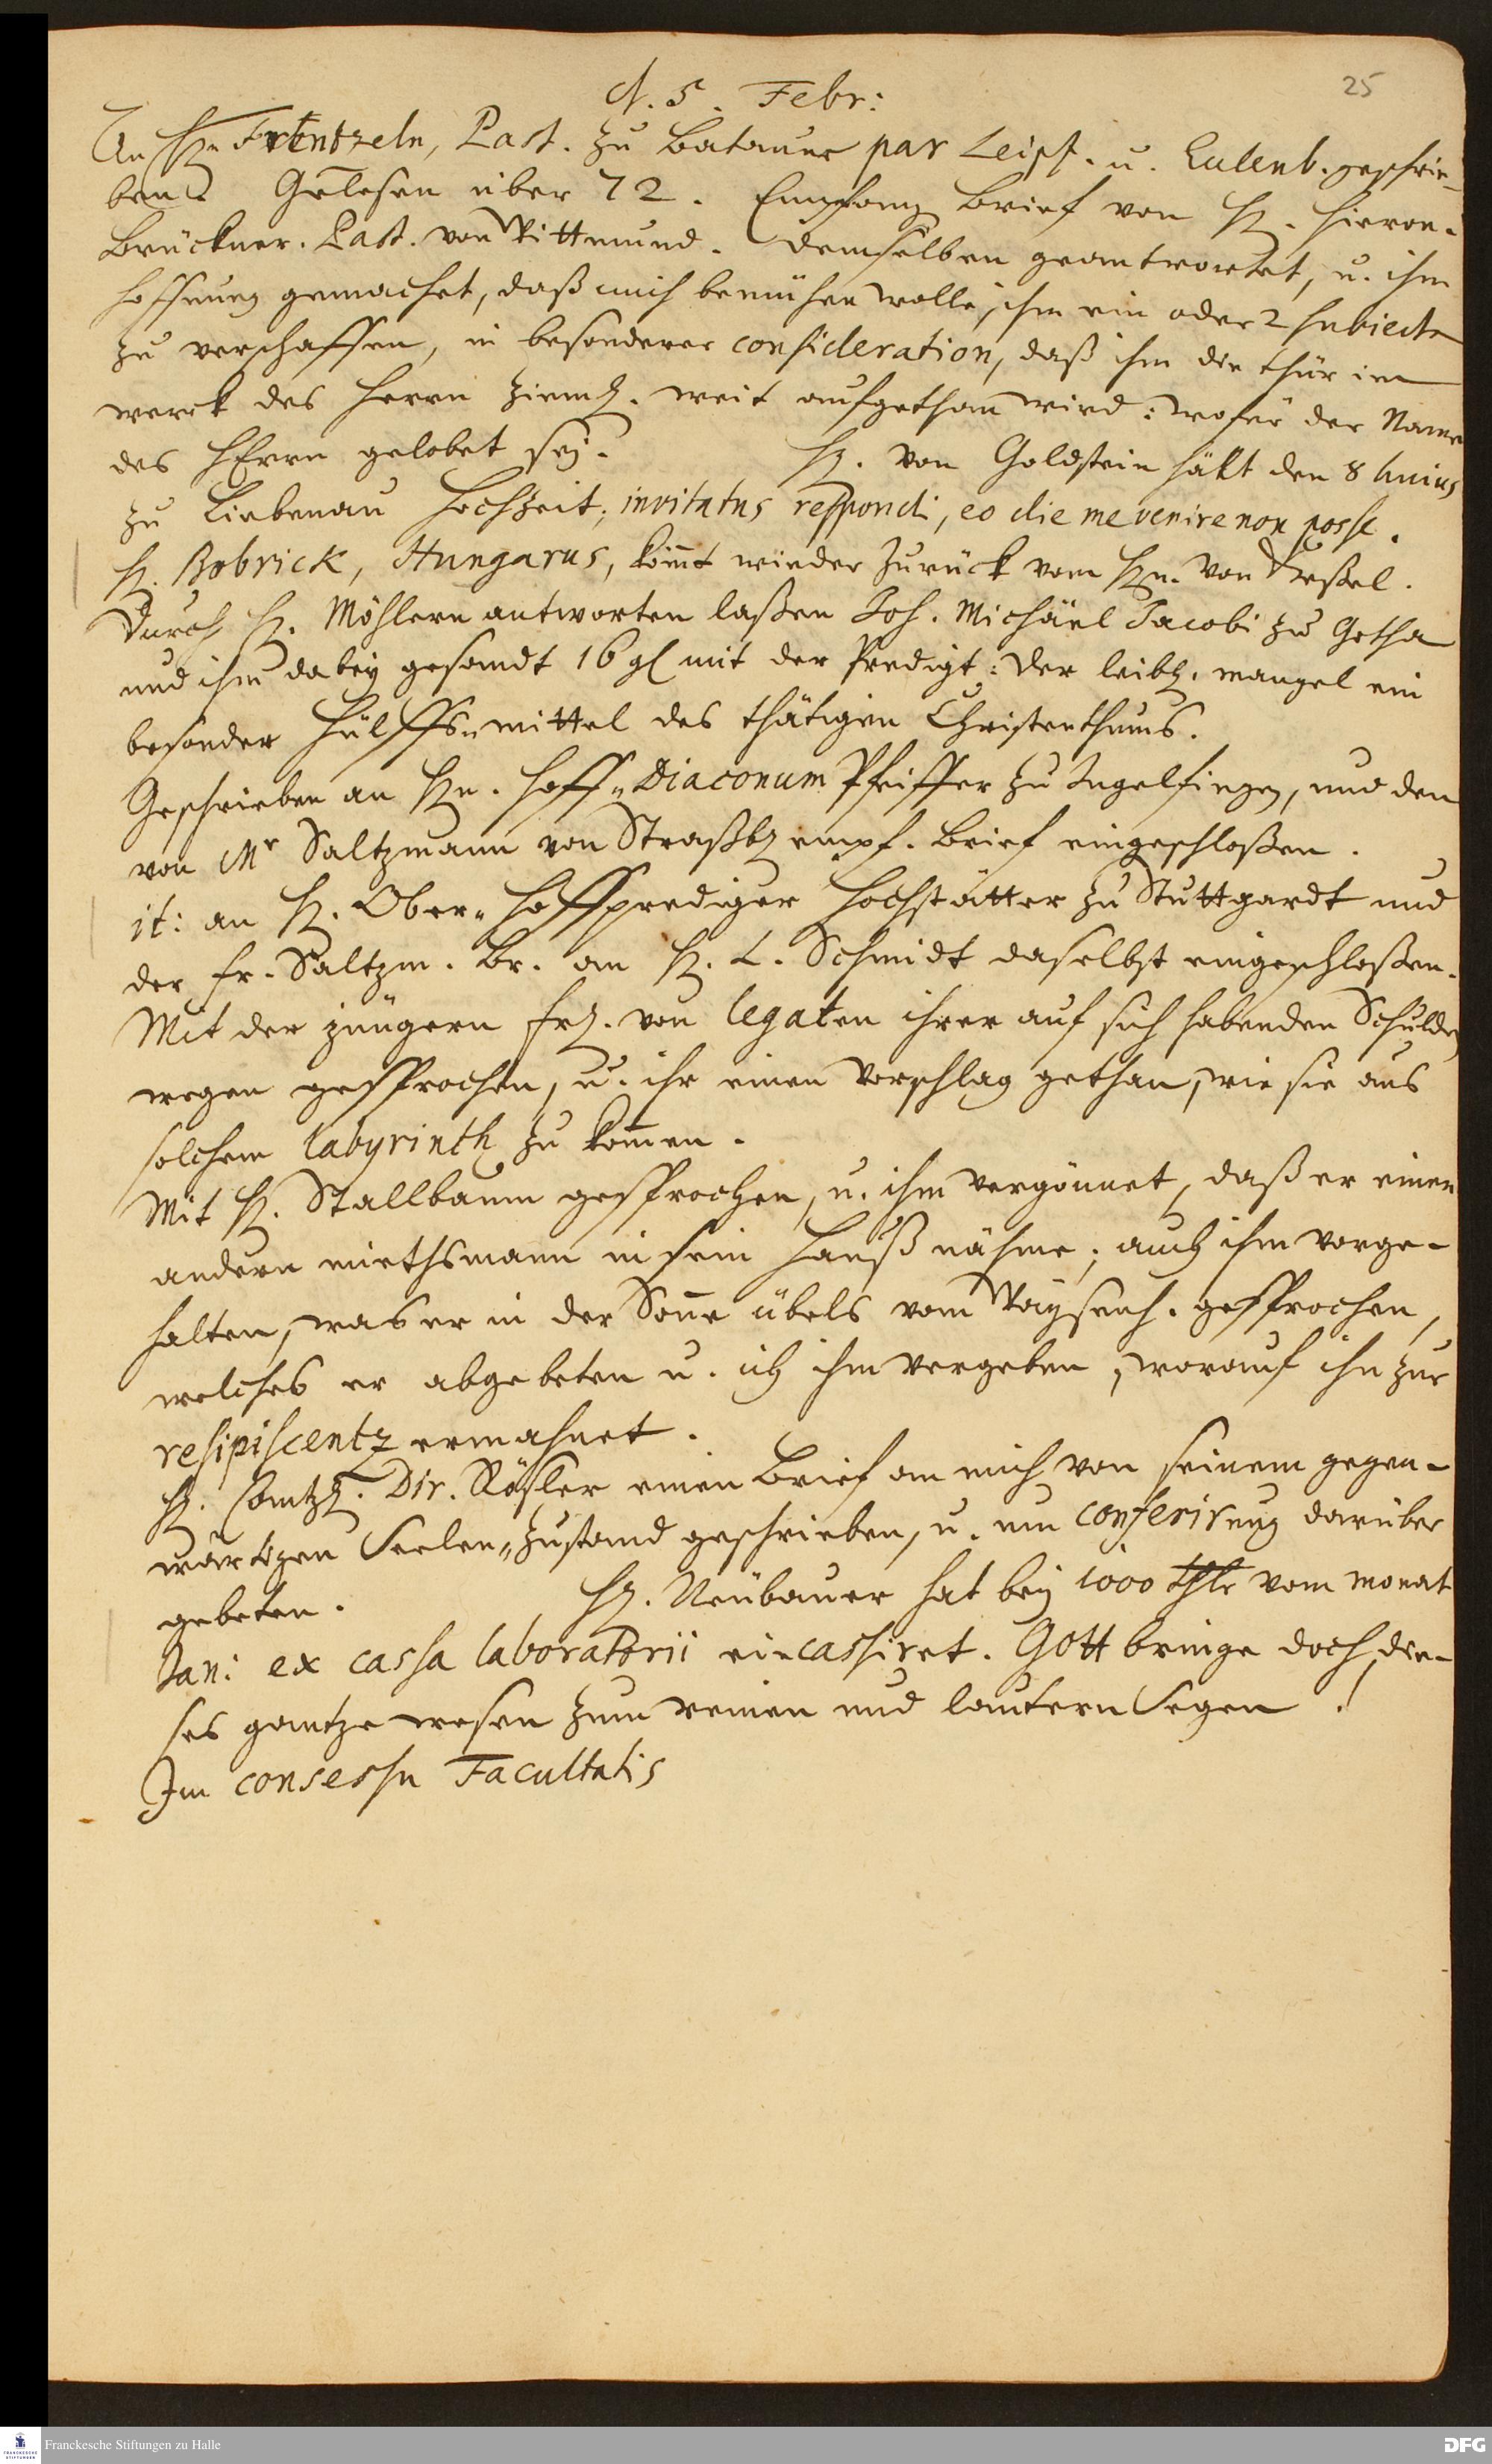 25
d. 5. Febr:
An Hn Frentzeln, Past. zu Bataune par Leips. u. Eulenb. geschrie-
ben. Gelesen über 72. Empfang Brief von H. Hieron.
Brückner. Past. von Wittmund. Demselben geantwortet, u. ihm
Hoffnung gemachet, daß mich bemühen wolle, ihm ein oder 2 subiecta
zu verschaffen, in besonderer consideration, daß ihm die thür im
werck des Herrn zieml. weit aufgethan wird: wofür der Name
des HErrn gelobet sej.
H. von Goldstein hält den 8 huius
zu Liebenau Hochzeit; invitatus respondi, eo die me venire non posse.
H. Bobrick, Hungarus, kömt wieder zurück vom Hn. von Deßel.
Durch H. Möhlern antworten laßen Joh. Michäel Jacobi zu Gotha
und ihm dabey gesandt 16 gl mit der Predigt: Der leibl. mangel ein
besonder Hülffs-mittel des thätigen Christenthums.
Geschrieben an Hn. Hoff-Diaconum Pfeiffer zu Ingelfingen, und den
von Mr Saltzmann von Straßb. empf. Brief eingeschloßen.
it: an H. Ober-Hoffprediger Hochstätter zu Stuttgardt und
der Fr. Saltzm. Br. an H. L. Schmidt daselbst eingeschloßen.
Mit der jüngern Frl. von Legaten ihrer auf sich habenden Schulden
wegen gesprochen, u. ihr einen Vorschlag gethan, wie sie aus
solchem labyrinth zu komen.
Mit H. Stallbaum gesprochen, u. ihm vergönnet, daß er einen
andern miethsmann in sein Hauß nähme; auch ihm vorge-
halten, was er in der Sonne übels vom Waysenh. gesprochen,
welches er abgebeten u. ich ihm vergeben, worauf ihn zur
resipiscentz ermahnet.
H. Cantzl. Dir. Rösler einen Brief an mich von seinem gegen-
wärtigen Seelen-zustand geschrieben, u. um conferirung darüber
gebeten.
H. Neubauer hat bey 1000 thlr vom monat
Jan: ex cassa laboratorii eincassiret. Gott bringe doch die-
ses gantze wesen zum reinen und lautern Segen!
Im consessu Facultatis
Franckesche Stiftungen zu Halle
DFG